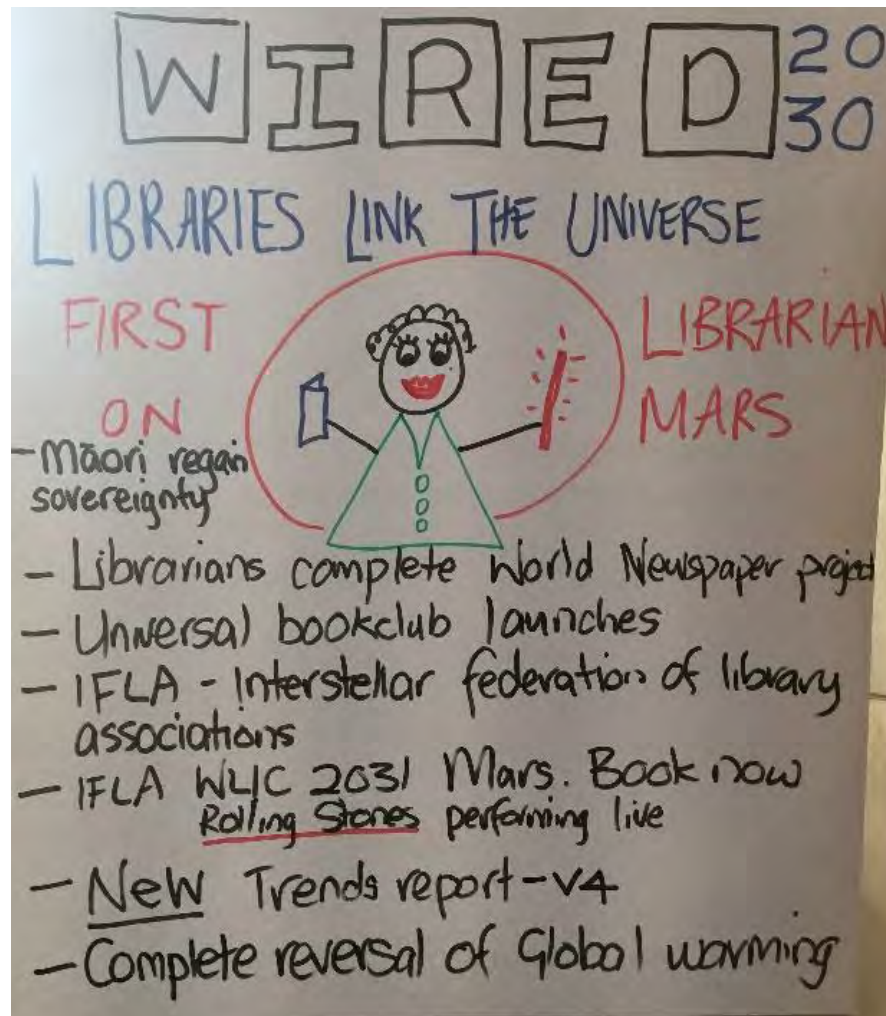 WIRED 20
30
LIBRARIES LINK THE UNIVERSE
FIRST LIBRARIAN
ON MARS
- Māori regain
sovereignty
- Librarians complete World Newspaper project
- Universal bookclub launches
- IFLA - Interstellar federation of library
associations
- IFLA WLIC 2031 Mars. Book now
Rolling Stones performing live
- New Trends report - V4
- Complete reversal of Global warming